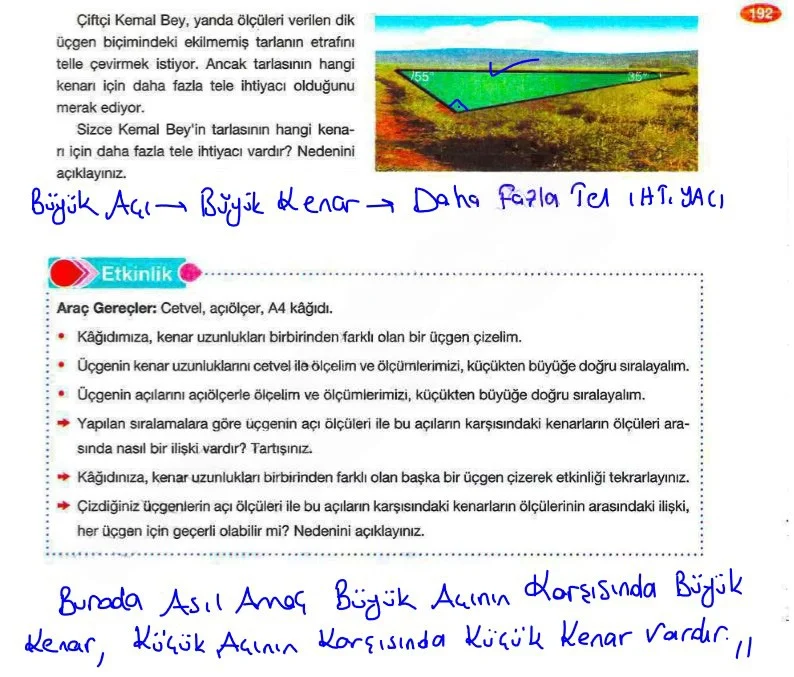 192
Çiftçi Kemal Bey, yanda ölçüleri verilen dik
üçgen biçimindeki ekilmemiş tarlanın etrafını
telle çevirmek istiyor. Ancak tarlasının hangi
kenarı için daha fazla tele ihtiyacı olduğunu
merak ediyor.
Sizce Kemal Bey'in tarlasının hangi kena-
rı için daha fazla tele ihtiyacı vardır? Nedenini
açıklayınız.
55°
35°
Büyük Açı → Büyük Kenar → Daha Fazla Tel İHTİYACI
Etkinlik
Araç Gereçler: Cetvel, açıölçer, A4 kâğıdı.
• Kâğıdımıza, kenar uzunlukları birbirinden farklı olan bir üçgen çizelim.
• Üçgenin kenar uzunluklarını cetvel ile ölçelim ve ölçümlerimizi, küçükten büyüğe doğru sıralayalım.
• Üçgenin açılarını açıölçerle ölçelim ve ölçümlerimizi, küçükten büyüğe doğru sıralayalım.
➔ Yapılan sıralamalara göre üçgenin açı ölçüleri ile bu açıların karşısındaki kenarların ölçüleri ara-
sında nasıl bir ilişki vardır? Tartışınız.
➔ Kâğıdınıza, kenar uzunlukları birbirinden farklı olan başka bir üçgen çizerek etkinliği tekrarlayınız.
➔ Çizdiğiniz üçgenlerin açı ölçüleri ile bu açıların karşısındaki kenarların ölçülerinin arasındaki ilişki,
her üçgen için geçerli olabilir mi? Nedenini açıklayınız.
Burada Asıl Amaç Büyük Açının Karşısında Büyük
Kenar, Küçük Açının Karşısında Küçük Kenar Vardır.,,